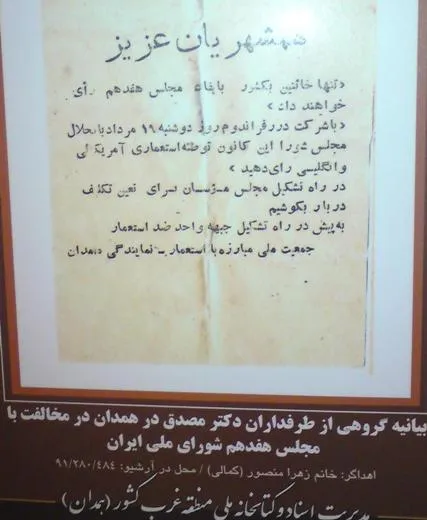 همشهریان عزیز
«تنها خائنین بکشور بابقاء مجلس هفدهم رأی
خواهند داد»
«باشرکت دررفراندوم روز دوشنبه ۱۹ مرداد بانحلال
مجلس شورا این کانون توطئه استعماری آمریکائی
وانگلیسی رای دهید»
در راه تشکیل مجلس مؤسسان برای تعین تکلیف
دربار بکوشیم
به پیش در راه تشکیل جبهه واحد ضد استعمار
جمعیت ملی مبارزه با استعمار - نمایندگی همدان
بیانیه گروهی از طرفداران دکتر مصدق در همدان در مخالفت با
مجلس هفدهم شورای ملی ایران
اهداگر: خانم زهرا منصور (کمالی) / محل در آرشیو: ۹۱/۲۸۰/۴۸۴
مدیریت اسناد و کتابخانه ملی منطقه غرب کشور (همدان)